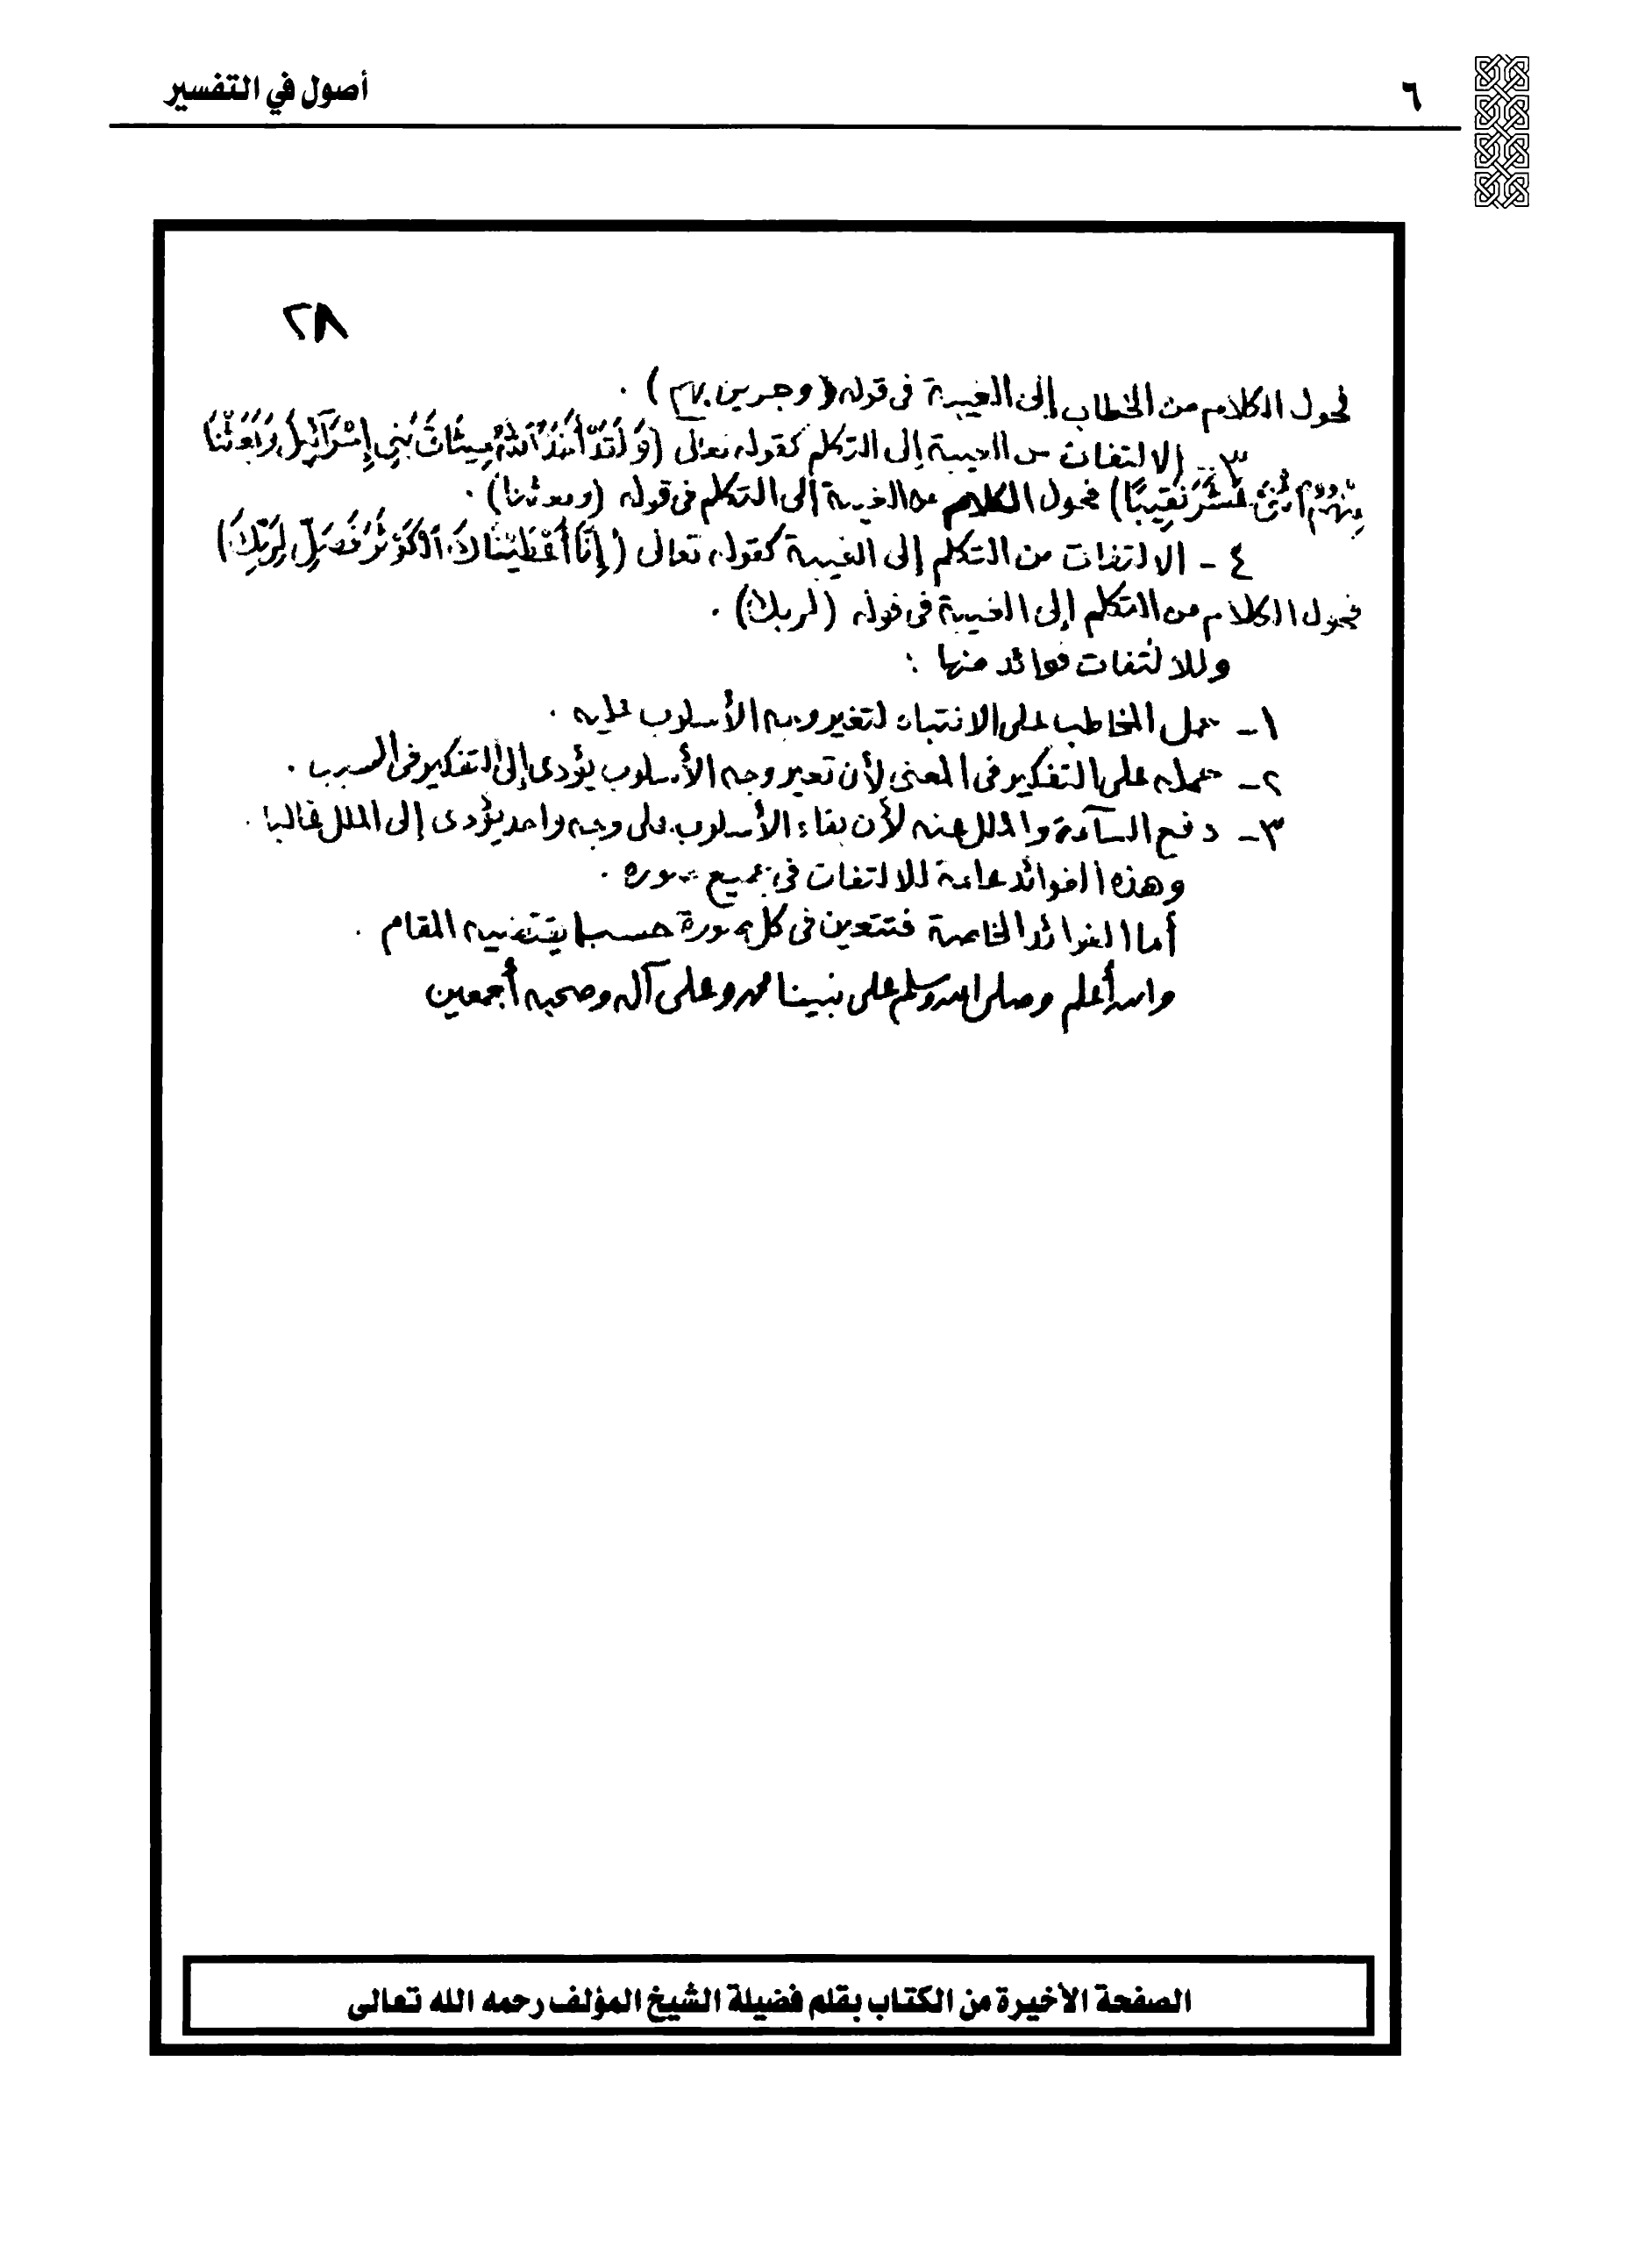 ٦
أصول في التفسير
٢٨
فحول الكلام من الخطاب إلى الغيبة في قوله (وجرين بهم) .
٣ - الالتفات من الغيبة إلى التكلم كقوله تعالى (وَلَقَدْ أَخَذَ اللَّهُ مِيثَاقَ بَنِي إِسْرَائِيلَ وَبَعَثْنَا
مِنْهُمُ اثْنَيْ عَشَرَ نَقِيبًا) فحول الكلام من الغيبة إلى التكلم في قوله (وبعثنا) .
٤ - الالتفات من التكلم إلى الغيبة كقوله تعالى (إِنَّا أَعْطَيْنَاكَ الْكَوْثَرَ فَصَلِّ لِرَبِّكَ)
فحول الكلام من التكلم إلى الغيبة في قوله (لربك) .
وللالتفات فوائد منها :
١ - حمل المخاطب على الانتباه لتغير وجه الأسلوب عليه .
٢ - حمله على التفكير في المعنى لأن تغير وجه الأسلوب يؤدى إلى التفكير في السبب .
٣ - دفع السآمة والملل عنه لأن بقاء الأسلوب على وجه واحد يؤدى إلى الملل غالبا .
وهذه الفوائد عامة للالتفات في جميع صوره .
أما الفوائد الخاصة فتتعين في كل صورة حسب ما يقتضيه المقام .
والله أعلم وصلى الله وسلم على نبينا محمد وعلى آله وصحبه أجمعين
الصفحة الأخيرة من الكتاب بقلم فضيلة الشيخ المؤلف رحمه الله تعالى